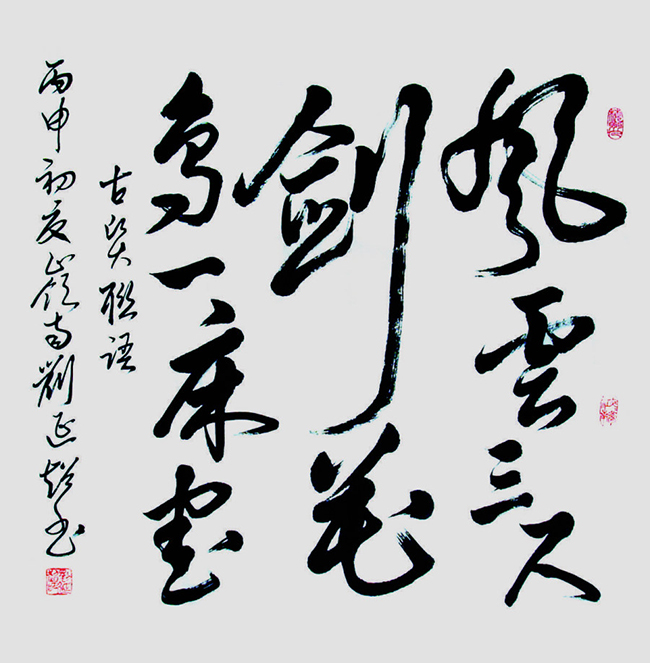 風雲三尺
劍花
鳥一床書
古賢聯語
丙申初夏嶺南劉延超書